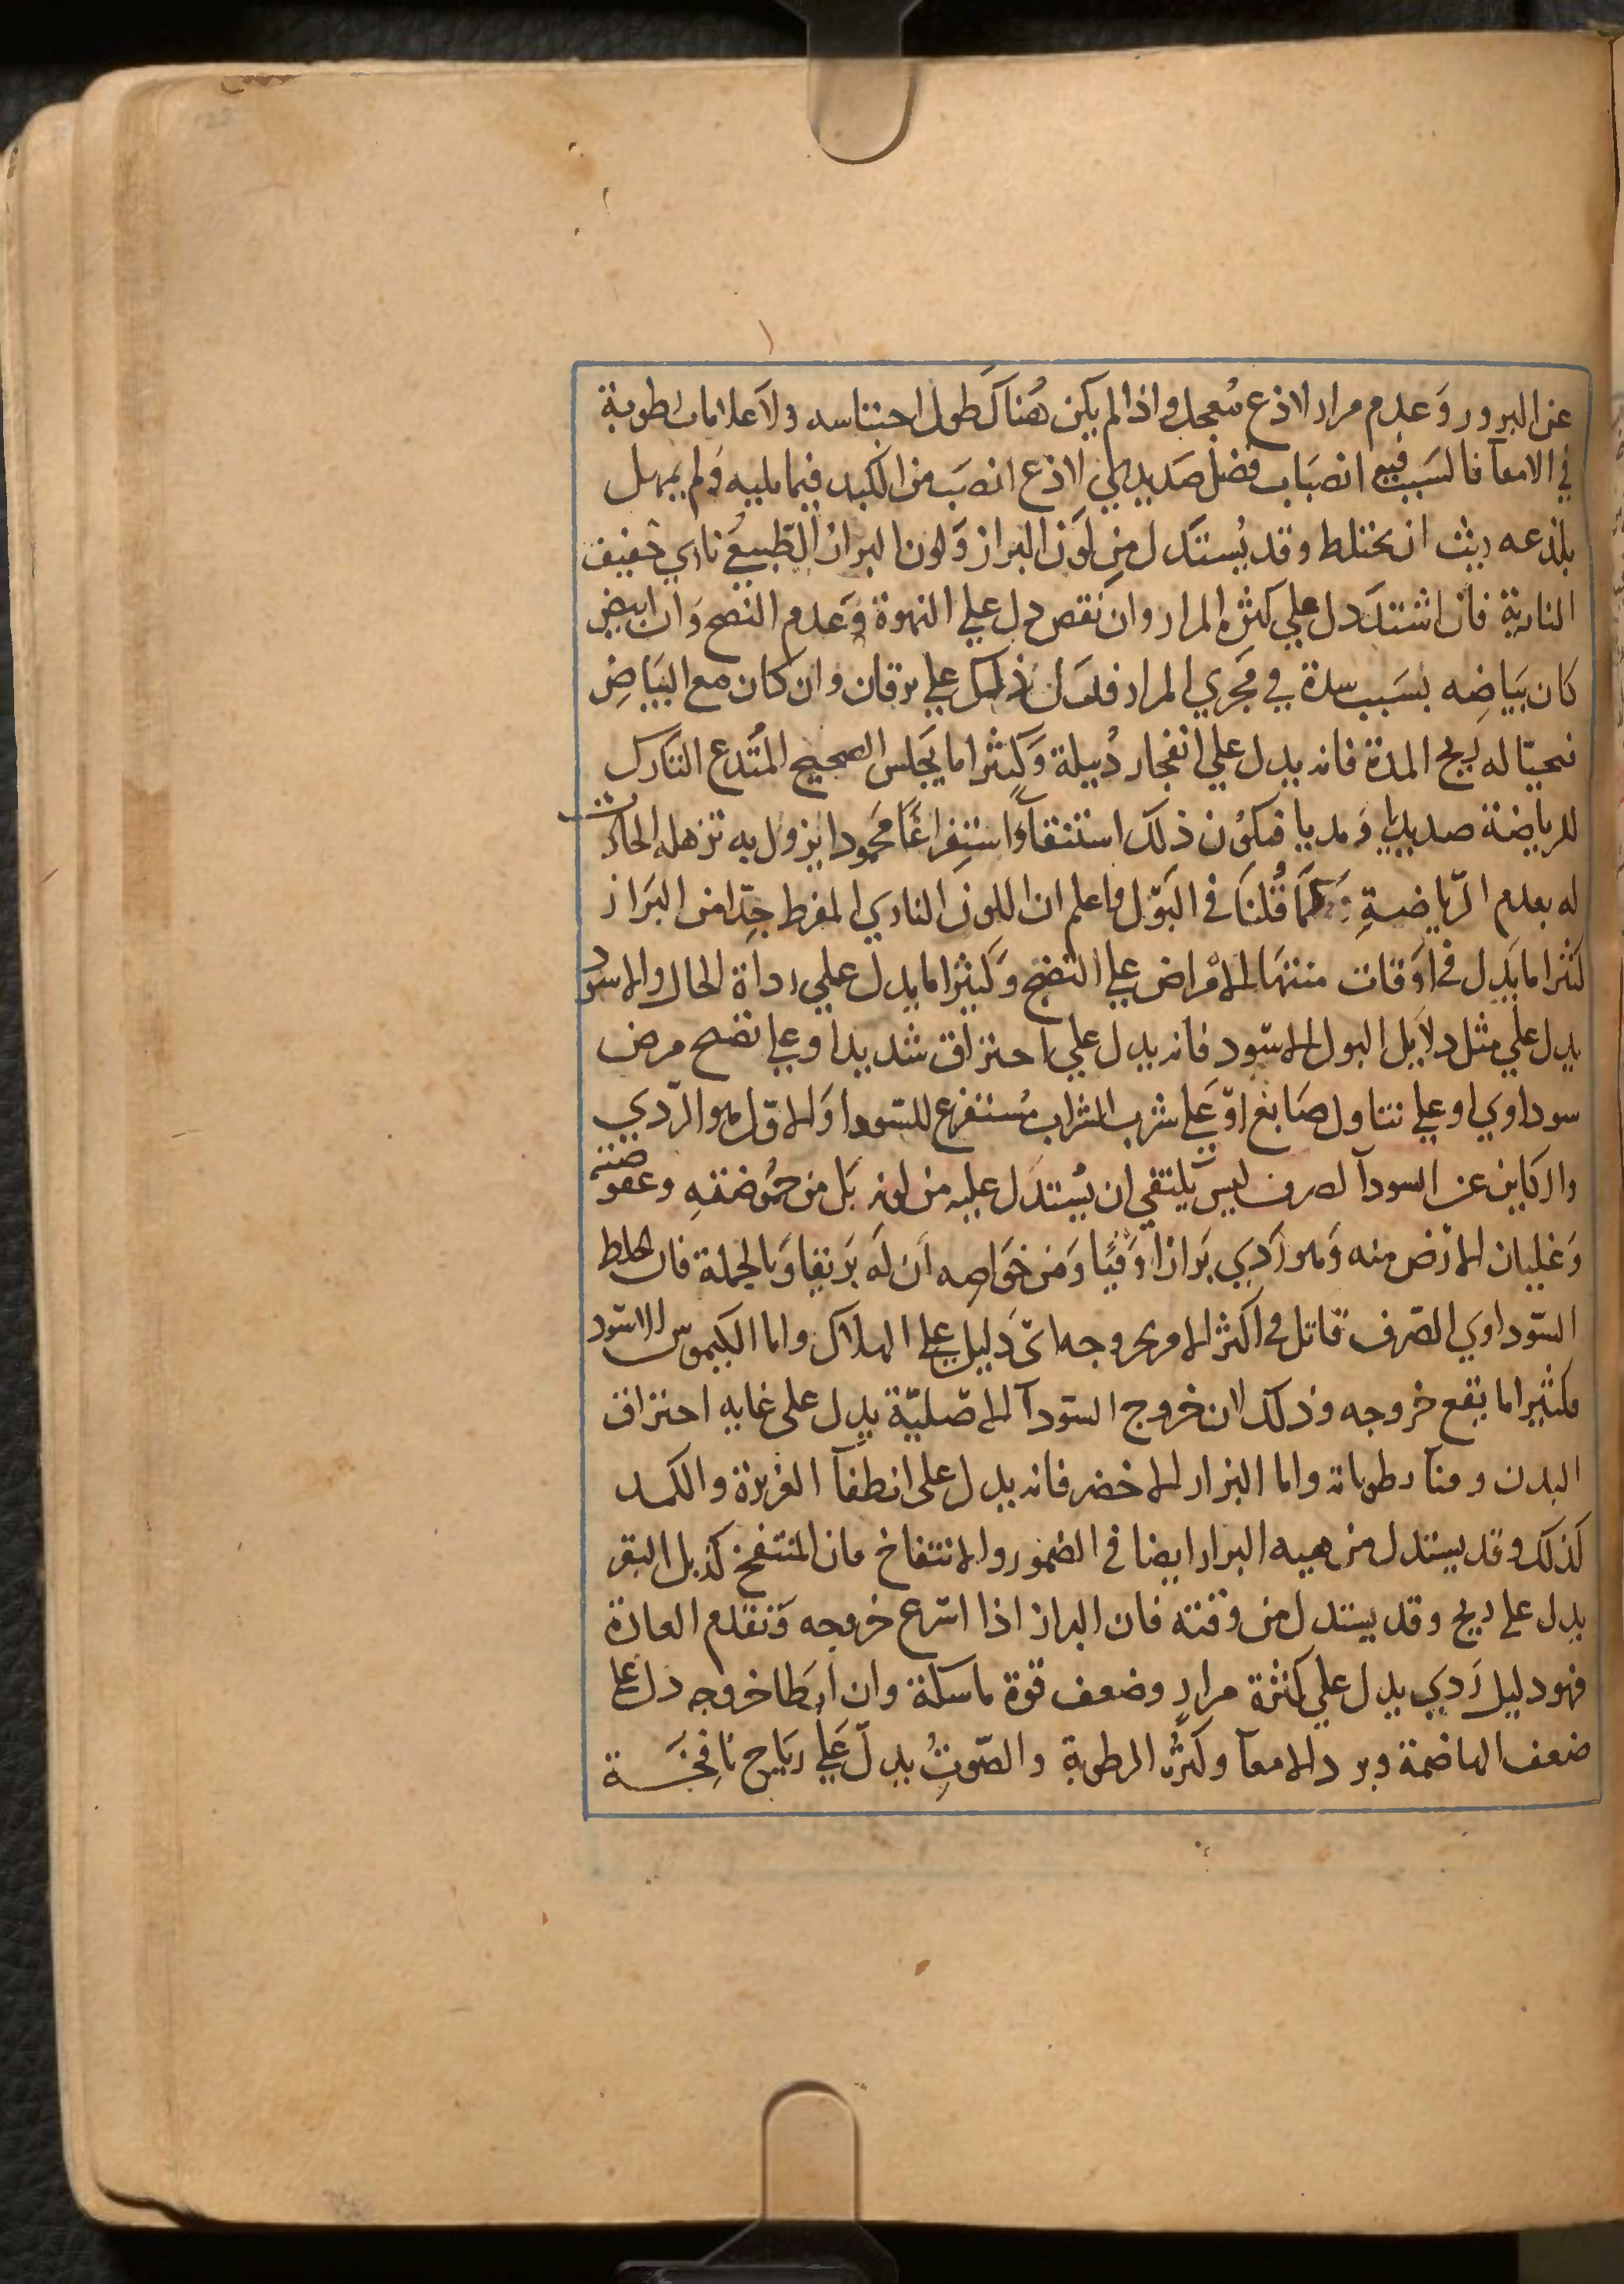 عن البرور وَعدم مرار لاذع مُعجل واذا لم يكن هُناكَ طول احتباسه ولا علامات رطوبة
في الامعآ فالسَبب فيه انصبَاب فضل صَديدي لاذع انصَب من الكبد فيما يليه وَلم يمهل
بلذعه ريث ان يختلط وقد يُستدَل من لوَن البراز وَلون البراز الطبيعي ناري خفيف
النارية فان اشتدَ دل علي كثرة المرار وان نقص دل علي النهوة وَعدم النضج وَان ابيض
كان بَياضِه بسَبب سدة في مَجري المرار فدَل ذلك علي يرقان وان كان مع البيَاضِ
قيحيّا له ريح المدة فانه يدل علي انفجار دُبيلة وَكثيرا ما يَجلس الصحيح المتَدع التارك
للرياضة صديديا ومديا فيكوُن ذلك استنقآءً واستفراغًا محَمودا يزول به ترهله الحادث
له بعدم الرّياضةِ كمَا قُلنَا في البَوّل واعلم ان اللون الناري المفرط جِدّا من البَراز
كثيرا ما يَدل في اوَقات منتهَا الامْراض علي النضج وَكثيرا ما يدل علي رداة الحال والاسود
يدل علي مثل دلآيل البول الاسود فانه يدل علي احتراق شديد او علي نضج مرض
سوداوي او علي تناول صَابغ اوَ عَلي شرب الشراب مُستفرغ للسّودا وَالاوّل هو الرّدي
والكاين عن السودآ الصرف ليس يلتقي ان يُستدَل عليه من لونه بَل من حمُوضته وعفوصته
وَغليان الارض منه وَهو رَدِي بَرازاً وَقيًا وَمن خوَاصه اَن لَه بَريقا وَبالجملة فان الخلط
السّوداوي الصّرف قاتل في اكثر الامر بخروجه اىّ دَليل علي الهلاك واما الكيموس الاسود
فكثيرا ما يقع خروجه وذلك لان خروج السّودآ الاصَليّة يدِل على غايه احتراق
البدن وفنآ رطوباته واما البراز الاخضر فانه يدل على انطفآ الغريزة والكمد
كذلك وقد يستدل من هيه البراز ايضا في الضمور والانتفاخ فان المنتفخ كزبل البقر
يدل علي ريح وقد يستدل من وقته فان البراز اذا اسَرع خروجه وَتقدم العادة
فهو دليل رَدي يدل علي كثرة مرارٍ وضعف قوة ماسكة وان اَبطا خروجه دل علي
ضعف الهاضمة وبرد الامعآ وكثرُة الرطوبة والصّوتُ يدِلّ عَلي ريَاح نَافِخَة